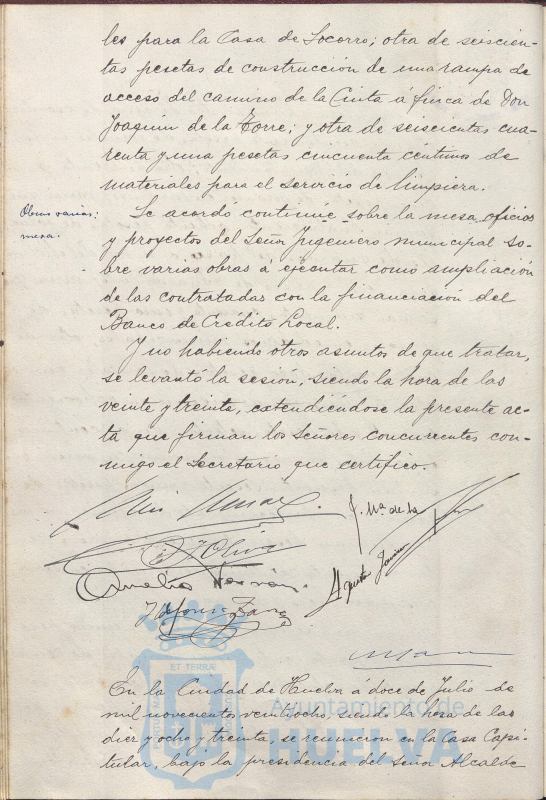 les para la Casa de Socorro; otra de seiscien-
tas pesetas de construcción de una rampa de
acceso del camino de la Cinta á finca de Don
Joaquín de la Torre; y otra de seiscientas cua-
renta y una pesetas cincuenta céntimos de
materiales para el servicio de limpiera.
Obras varias:
mesa.
Se acordó continúe sobre la mesa oficios
y proyectos del Señor Ingeniero municipal so-
bre varias obras á ejecutar como ampliación
de las contratadas con la financiación del
Banco de Crédito Local.
Y no habiendo otros asuntos de que tratar,
se levantó la sesión, siendo la hora de las
veinte y treinta, extendiéndose la presente ac-
ta que firman los Señores concurrentes con-
migo el Secretario que certifico.
J. Mª de la
Oliva
En la Ciudad de Huelva á doce de Julio de
mil novecientos veintiocho, siendo la hora de las
diez y ocho y treinta, se reunieron en la Casa Capi-
tular, bajo la presidencia del Señor Alcalde
Ayuntamiento de
HUELVA